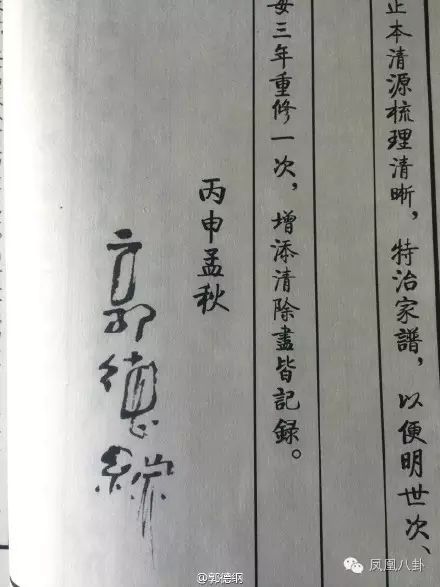 止本清源梳理清晰，特治家譜，以便明世次、
每三年重修一次，增添清除盡皆記録。
丙申孟秋
郭德綱
@郭德纲
凤凰八卦